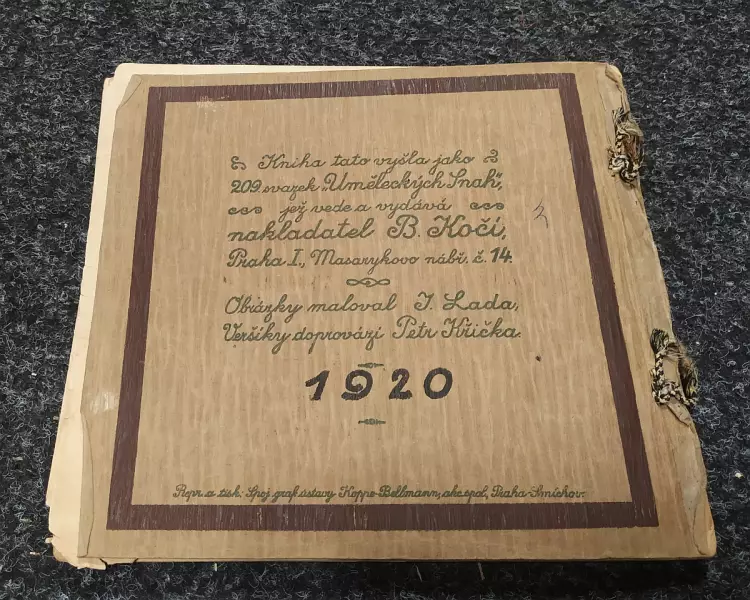 Kniha tato vyšla jako
209 svazek „Uměleckých Snah“,
jež vede a vydává
nakladatel B. Kočí,
Praha I., Masarykovo nábř. č. 14.
Obrázky maloval J. Lada,
Veršíky doprovází Petr Křička.
1920
Repr. a tisk: Spoj. graf. ústavy Koppe-Bellmann, akc. spol., Praha-Smíchov.